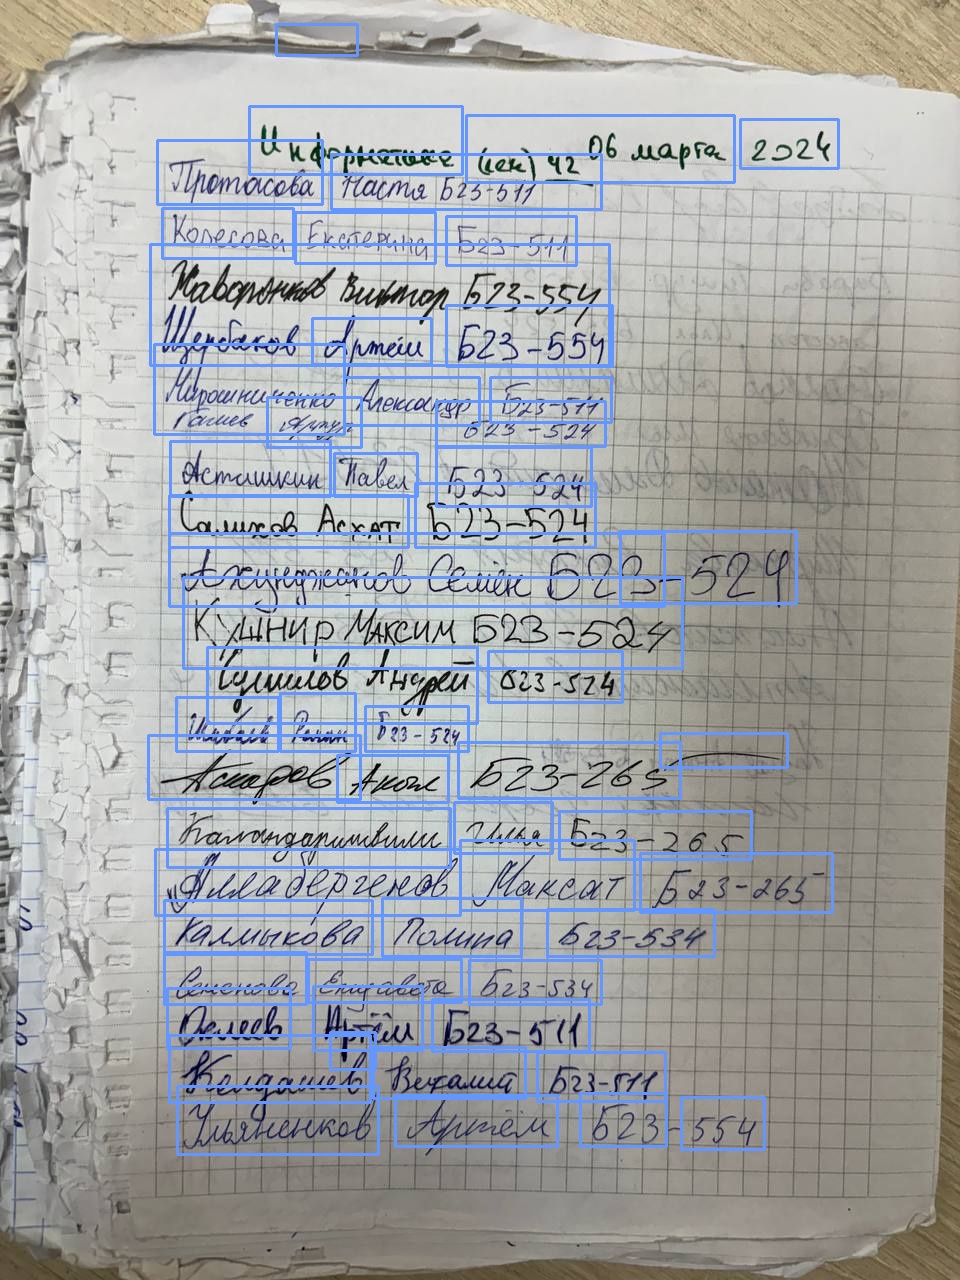 Информатика (лек) ч2 06 марта 2024
Протасова Настя Б23-511
Колесова Екатерина Б23-511
Жаворонков Виктор Б23-554
Щербаков Артём Б23-554
Мирошниченко Александр Б23-511
Артур Б23-524
Асташкин Павел Б23-524
Салихов Асхат Б23-524
Ахунджанов Семён Б23-524
Кушнир Максим Б23-524
Андрей Б23-524
Шабаев Б23-524
Аскаров Акыл Б23-265
Камандаришвили Илья Б23-265
Аллабергенов Максат Б23-265
Калмыкова Полина Б23-534
Семенова Елизавета Б23-534
Артём Б23-511
Колдашев Б23-511
Ульяненков Артём Б23-554